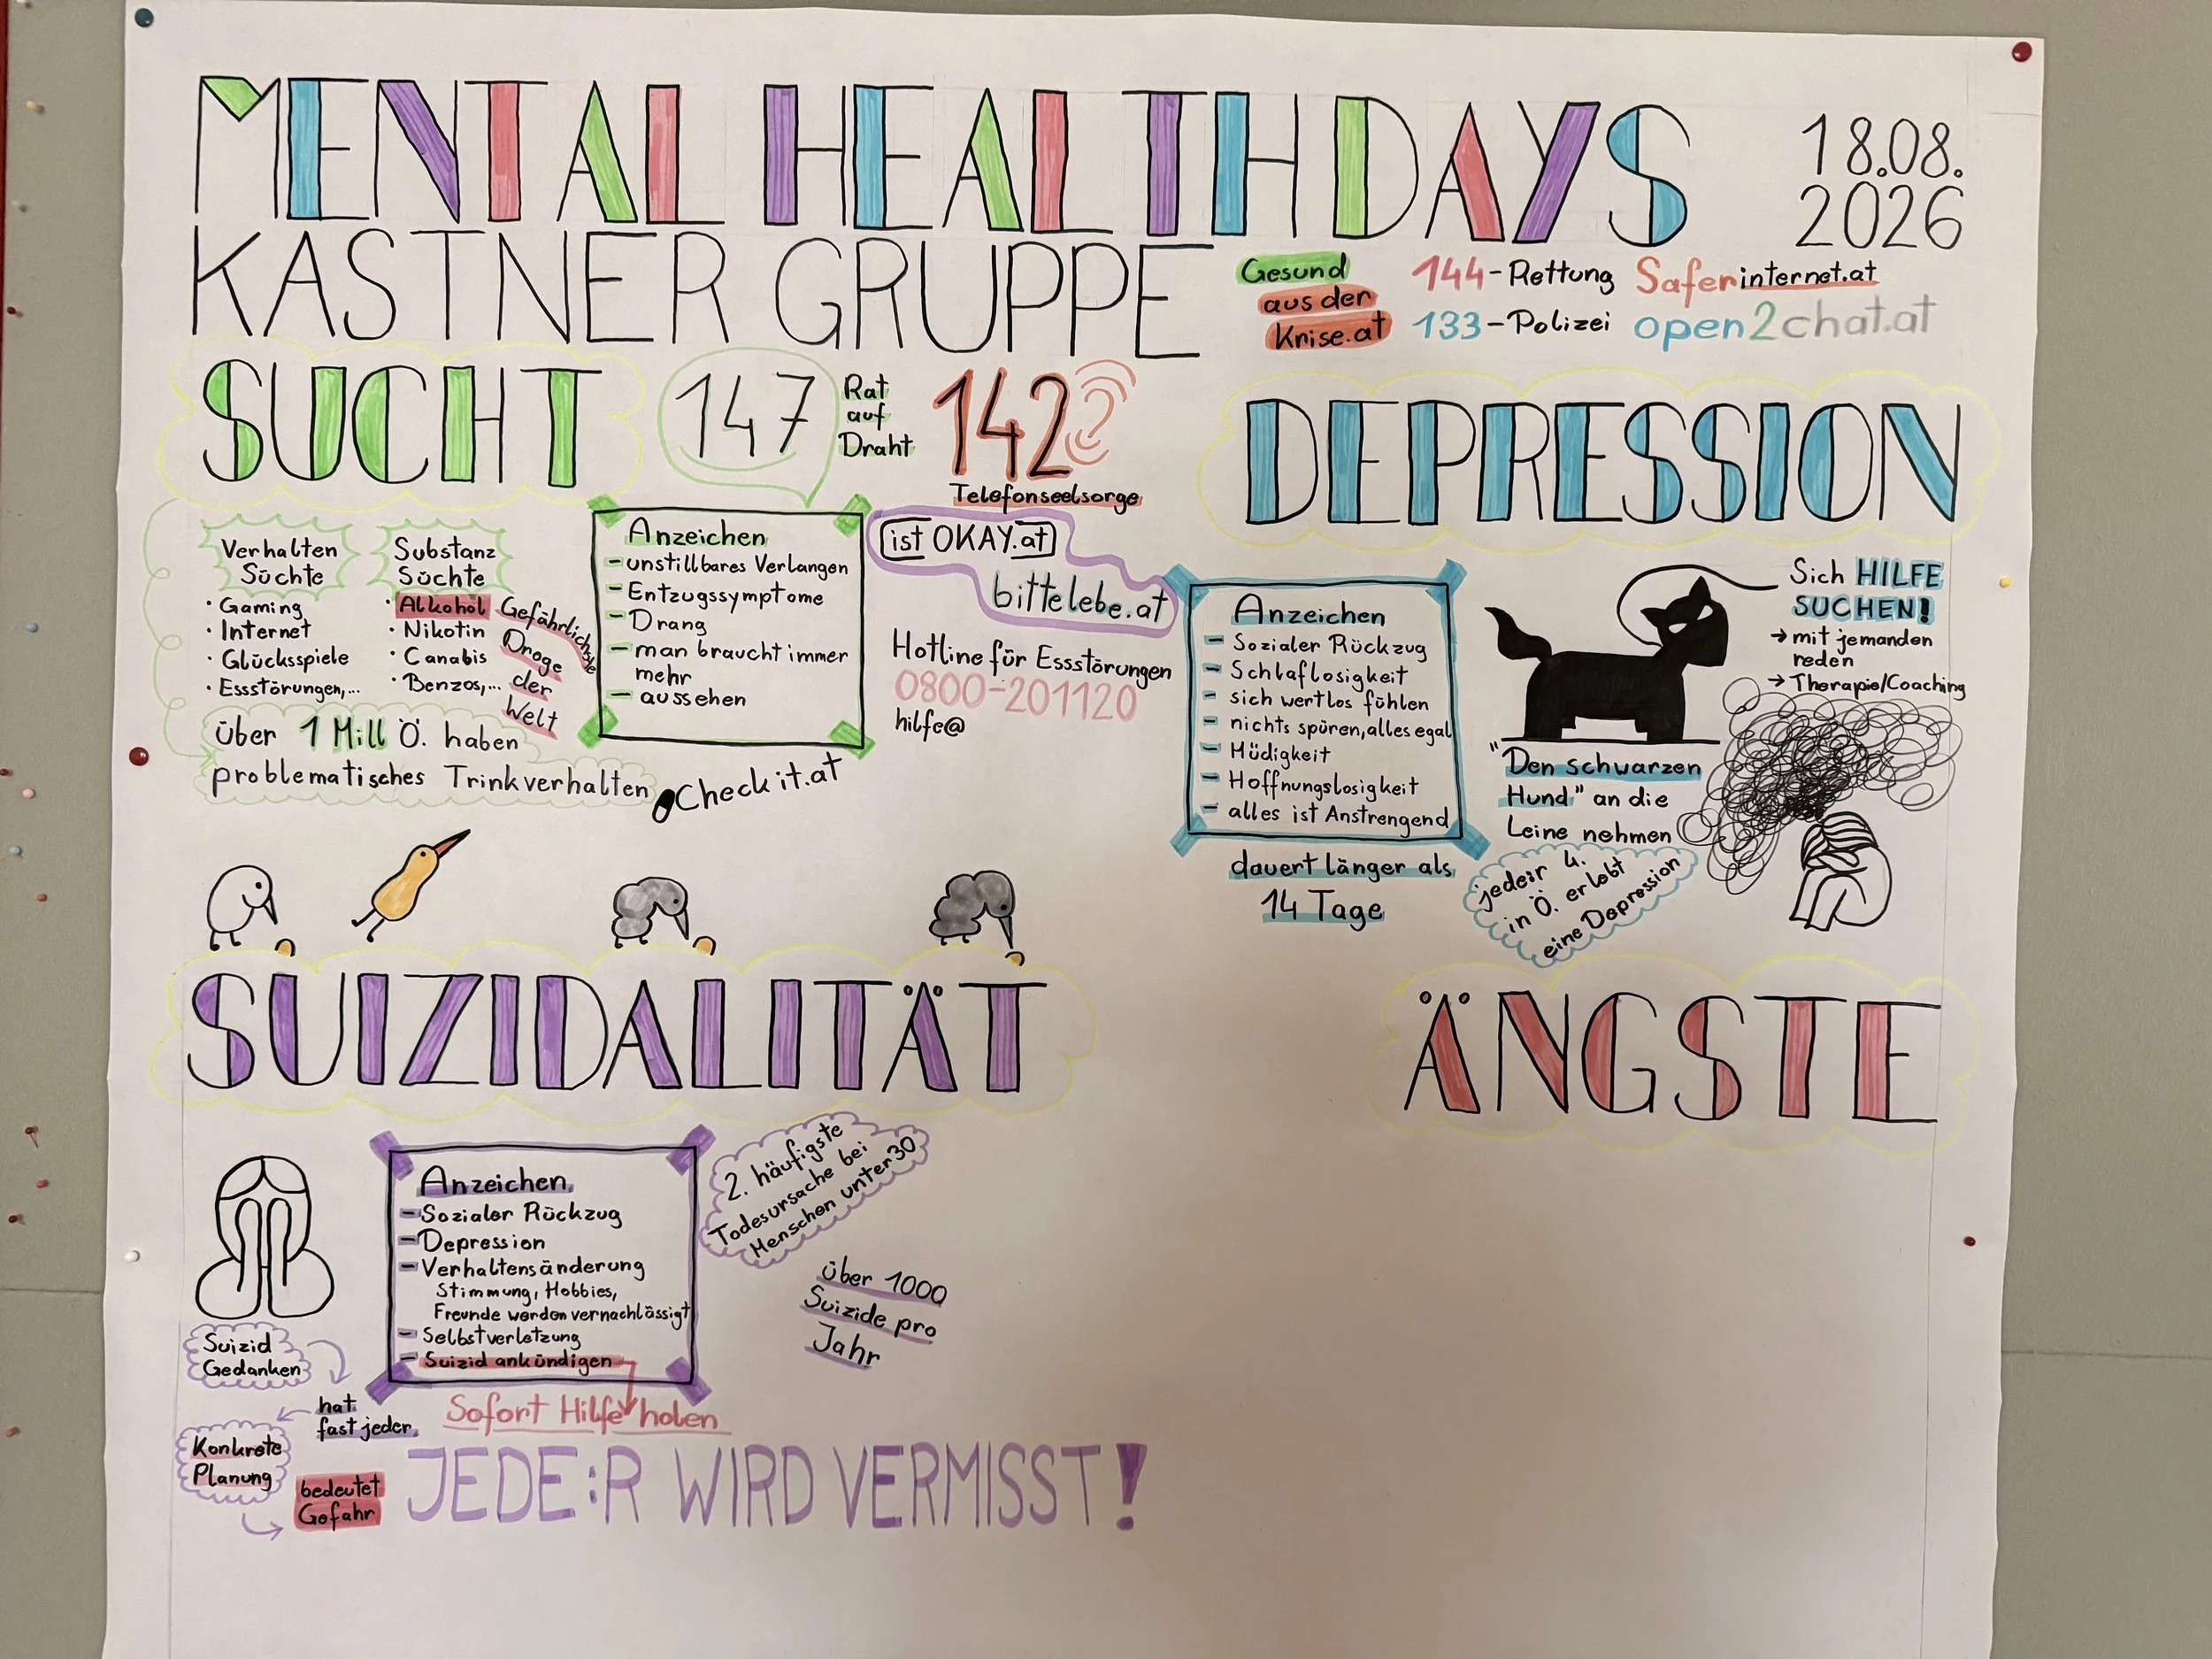 MENTAL HEALTH DAYS
18.08.
2026
KASTNER GRUPPE
Gesund
aus der
Krise.at
144-Rettung
133-Polizei
Saferinternet.at
open2chat.at
SUCHT
147
Rat
auf
Draht
142
Telefonseelsorge
Verhalten
Süchte
· Gaming
· Internet
· Glücksspiele
· Essstörungen,...
Substanz
Süchte
· Alkohol
· Nikotin
· Canabis
· Benzos,...
Gefährlichste
Droge
der
Welt
über 1 Mill Ö. haben
problematisches Trinkverhalten
Anzeichen
- unstillbares Verlangen
- Entzugssymptome
- Drang
- man braucht immer
mehr
- aussehen
Check it.at
ist OKAY.at
bittelebe.at
Hotline für Essstörungen
0800-201120
hilfe@
DEPRESSION
Anzeichen
- Sozialer Rückzug
- Schlaflosigkeit
- sich wertlos fühlen
- nichts spüren, alles egal
- Müdigkeit
- Hoffnungslosigkeit
- alles ist Anstrengend
dauert länger als
14 Tage
Sich HILFE
SUCHEN!
→ mit jemanden
reden
→ Therapie/Coaching
"Den schwarzen
Hund" an die
Leine nehmen
jede:r 4.
in Ö. erlebt
eine Depression
SUIZIDALITÄT
Anzeichen
- Sozialer Rückzug
- Depression
- Verhaltensänderung
Stimmung, Hobbies,
Freunde werden vernachlässigt
- Selbstverletzung
- Suizid ankündigen
Sofort Hilfe holen
2. häufigste
Todesursache bei
Menschen unter 30
über 1000
Suizide pro
Jahr
Suizid
Gedanken
hat
fast jeder
Konkrete
Planung
bedeutet
Gefahr
JEDE:R WIRD VERMISST!
ÄNGSTE